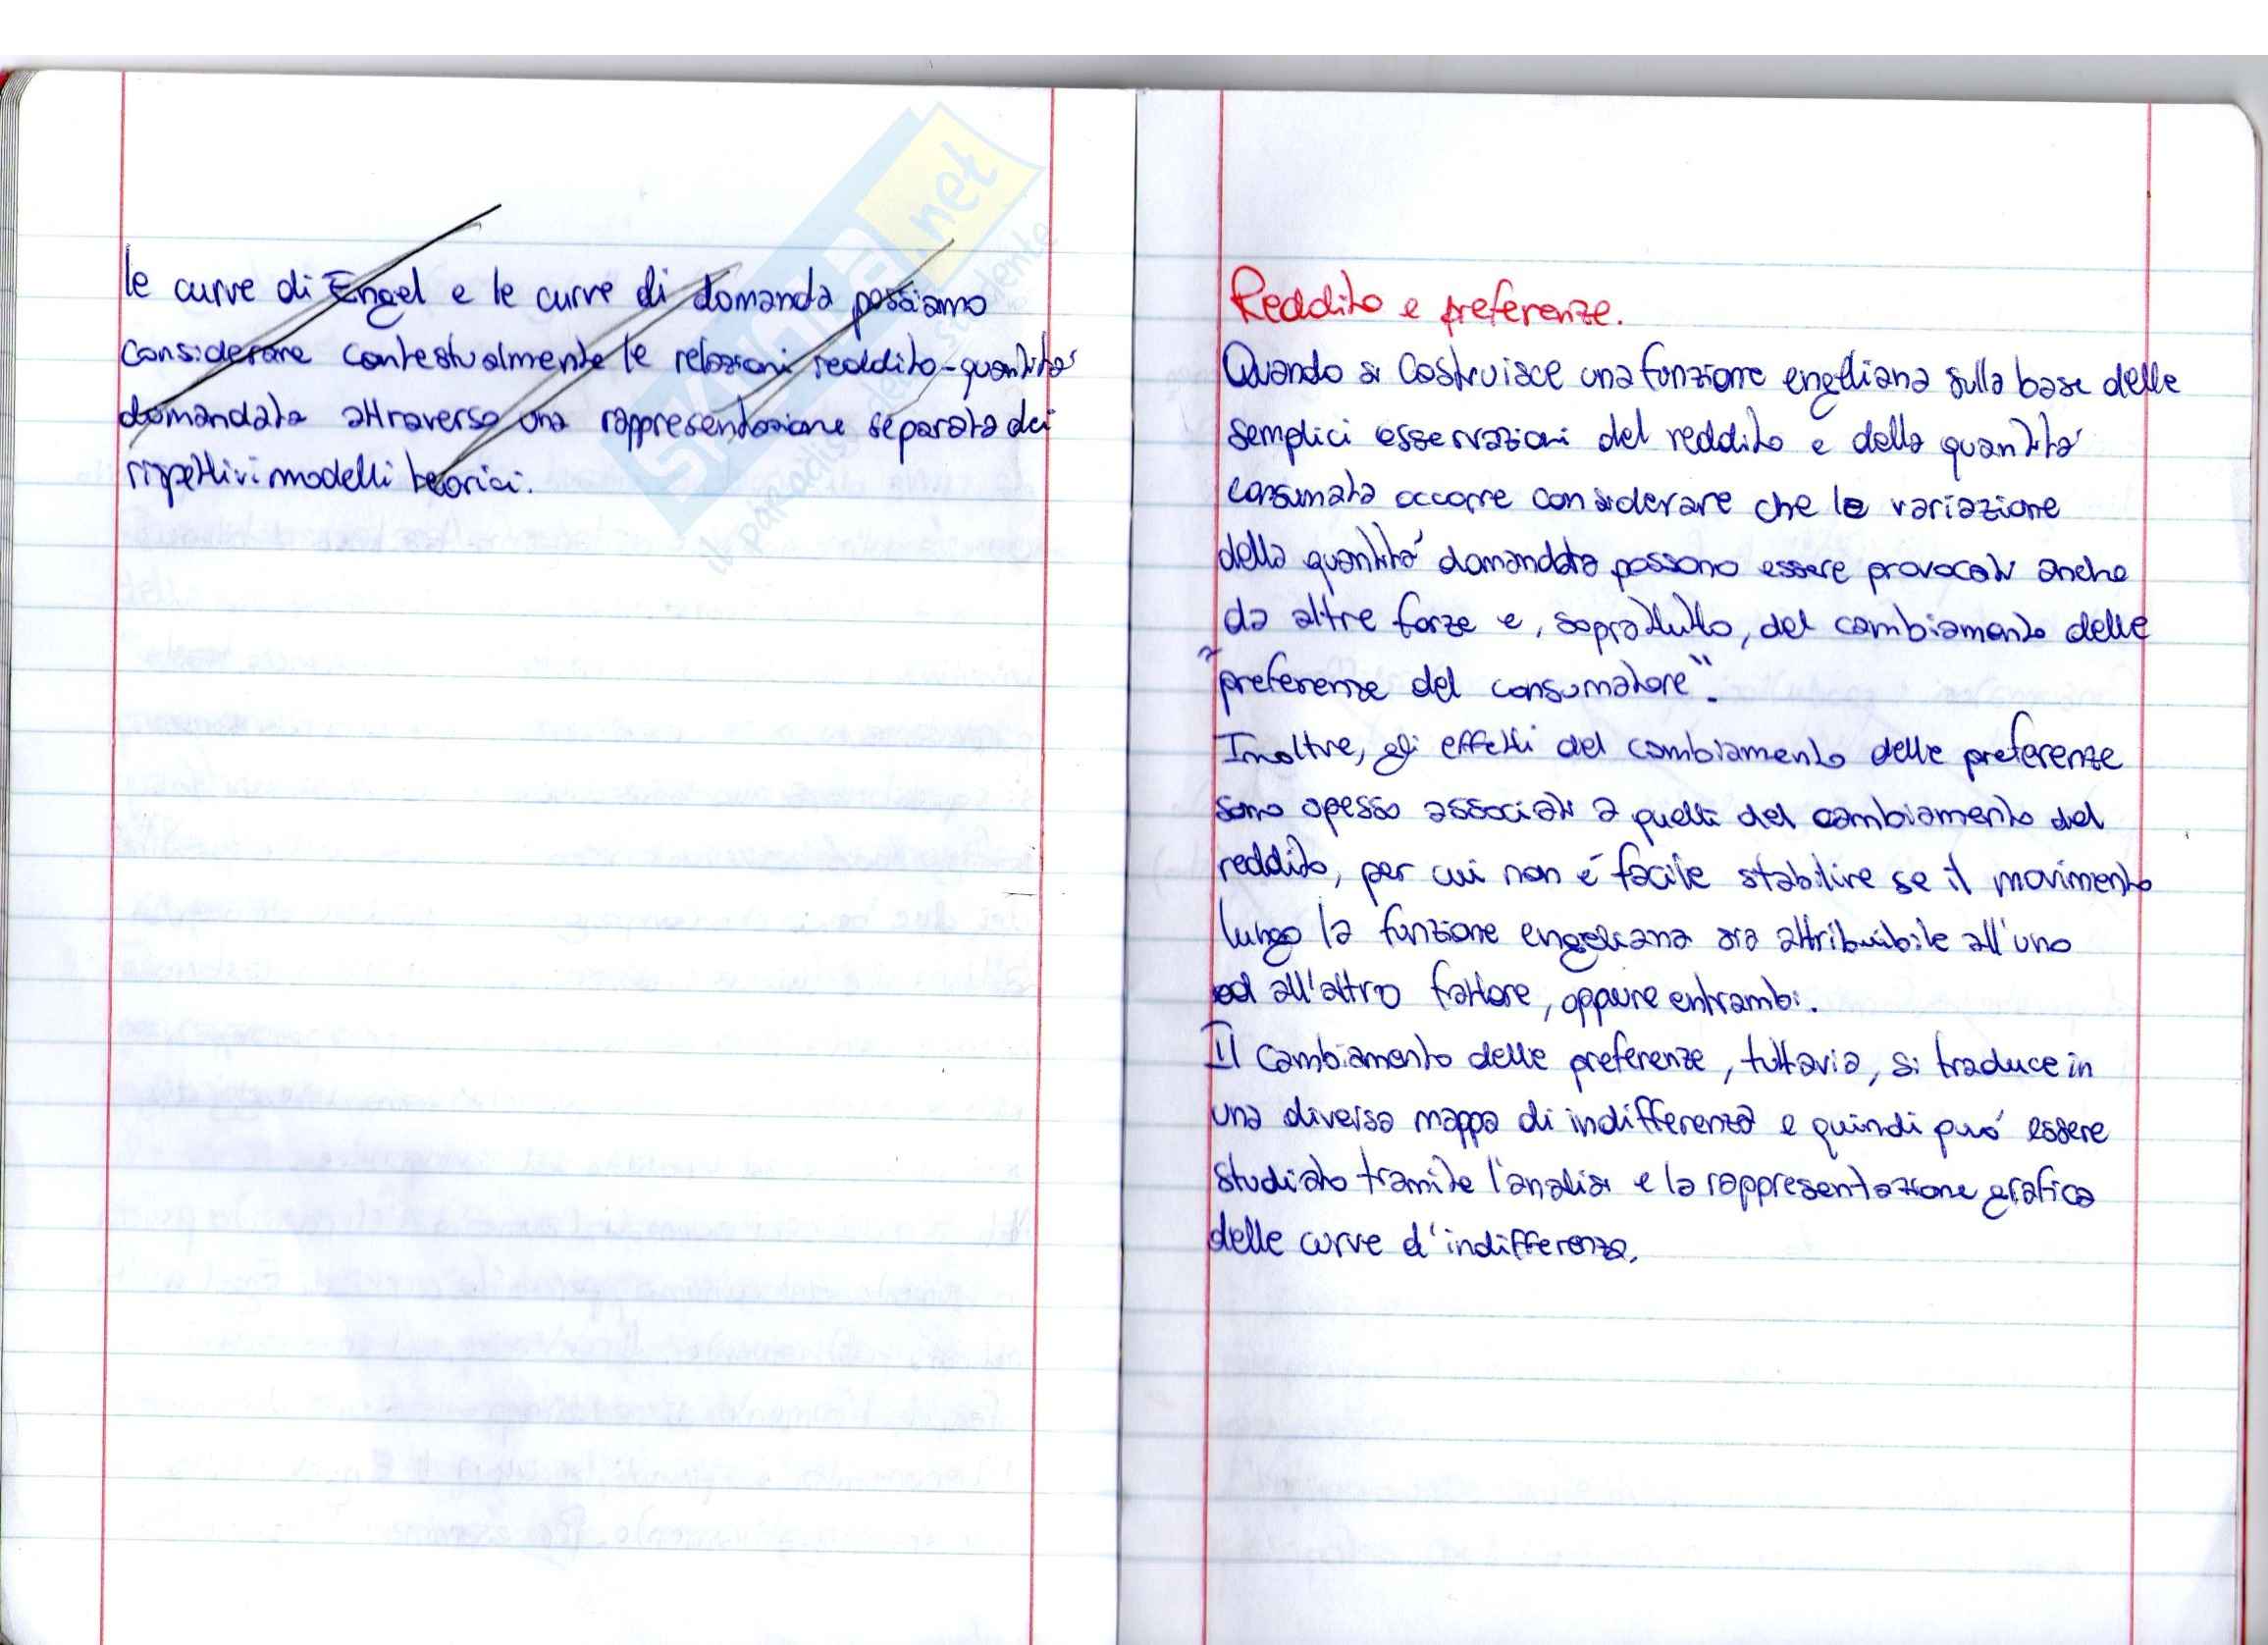 le curve di Engel e le curve di domanda possiamo
considerare contestualmente le relazioni reddito-quantità
domandata attraverso una rappresentazione separata dei
rispettivi modelli teorici.
SKUOLA.net
il paradiso dello studente
Reddito e preferenze.
Quando si costruisce una funzione engelliana sulla base delle
semplici osservazioni del reddito e della quantità
consumata occorre considerare che le variazione
della quantità domandata possono essere provocati anche
da altre forze e, soprattutto, del cambiamento delle
"preferenze del consumatore".
Inoltre, gli effetti del cambiamento delle preferenze
sono spesso associati a quelli del cambiamento del
reddito, per cui non é facile stabilire se il movimento
lungo la funzione engeliana sia attribuibile all'uno
od all'altro fattore, oppure entrambi.
Il cambiamento delle preferenze, tuttavia, si traduce in
una diversa mappa di indifferenza e quindi puó essere
studiato tramite l'analisi e la rappresentazione grafica
delle curve d'indifferenza.